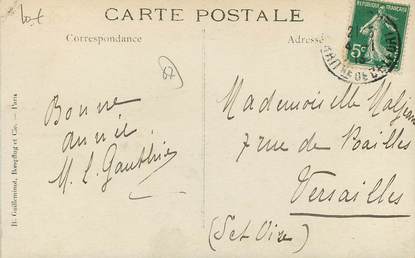 CARTE POSTALE
Correspondance
Adresse
RÉPUBLIQUE FRANÇAISE
5c
87
Bonne
année
M. L. Gauthier
Mademoiselle
7 rue de Noailles
Versailles
(Set Oise)
B. Guilleminot, Boespflug et Cie. — Paris